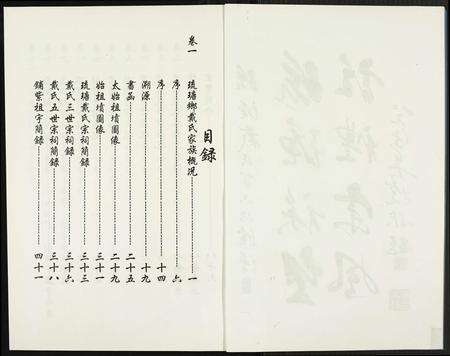 目錄
卷一
琉鄉戴氏家族概況……一
序……六
序……十四
溯源……十九
書函……二十五
太始祖墳圖像……二十九
始祖墳圖像……三十一
琉戴氏宗祠簡錄……三十三
戴氏三世宗祠錄……三十六
戴氏五世宗祠簡錄……三十八
祖宇簡錄……四十一